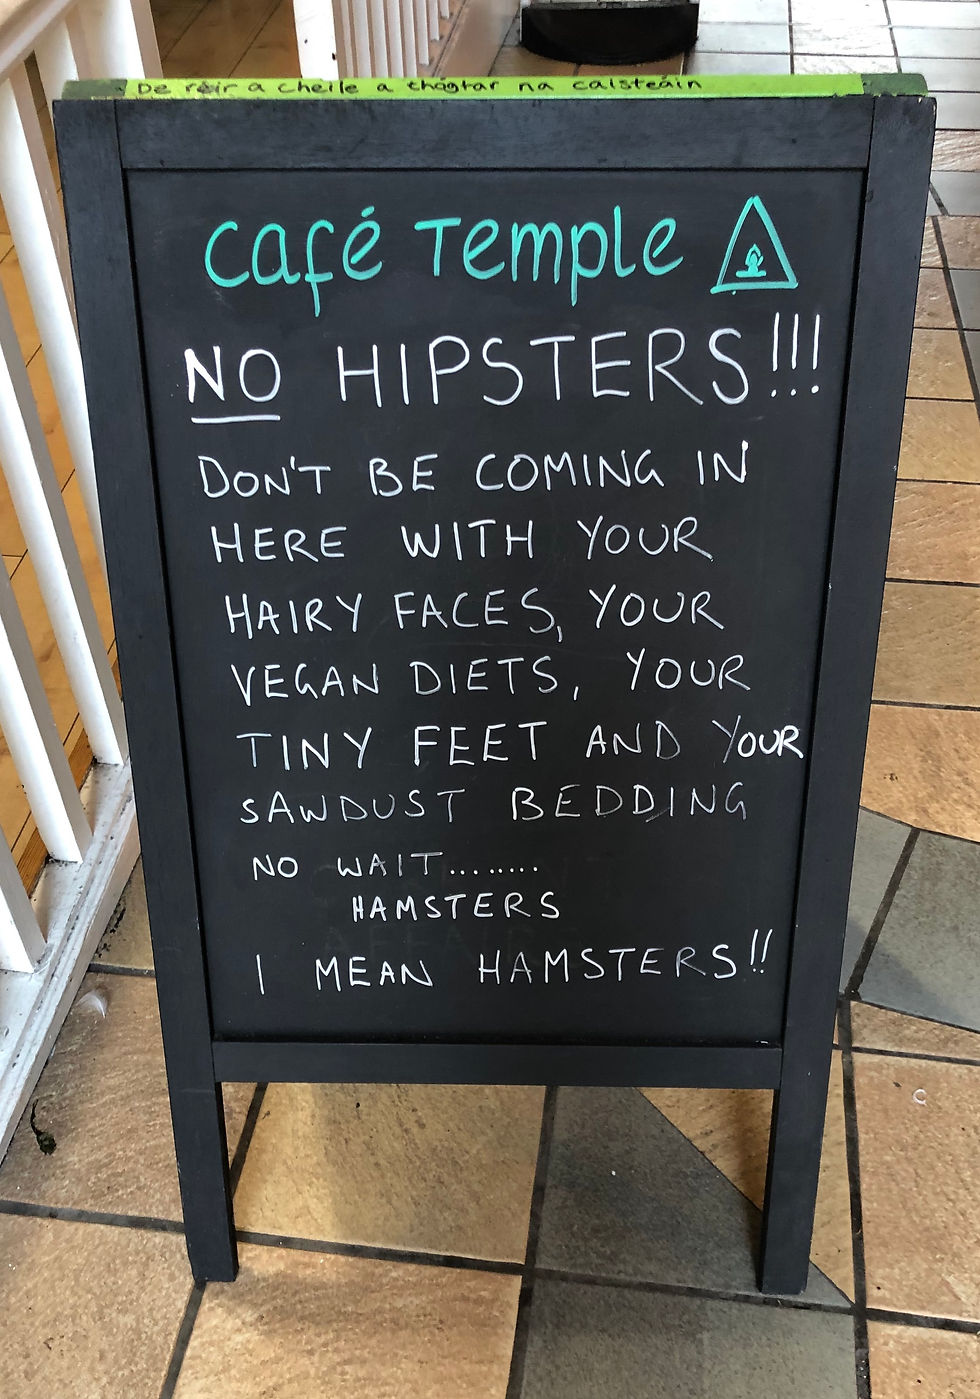 De réir a cheile a thógtar na caisteáin
Café Temple
NO HIPSTERS!!!
DON'T BE COMING IN
HERE WITH YOUR
HAIRY FACES, YOUR
VEGAN DIETS, YOUR
TINY FEET AND YOUR
SAWDUST BEDDING
NO WAIT........
HAMSTERS
I MEAN HAMSTERS!!